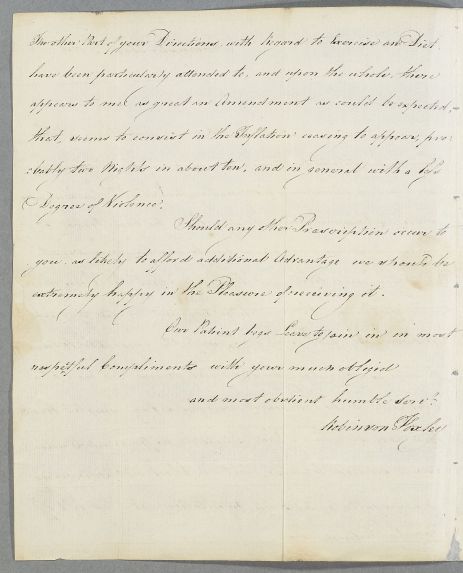 The other Part of your Directions, with Regard to Exercise and Diet
have been particularly attended to, and upon the whole, there
appears to me as great an Amendment as could be expected,
that, seems to consist in the Inflation ceasing to appear, pro
:bably two Nights in about ten, and in general with a less
Degree of Violence.
Should any other Prescription occur to
you, as likely to afford additional Advantage we should be
extremely happy in the Pleasure of receiving it.
Our Patient begs Leave to join in in most
respectful Compliments with your much obliged
and most obedient humble Servt.
Robinson